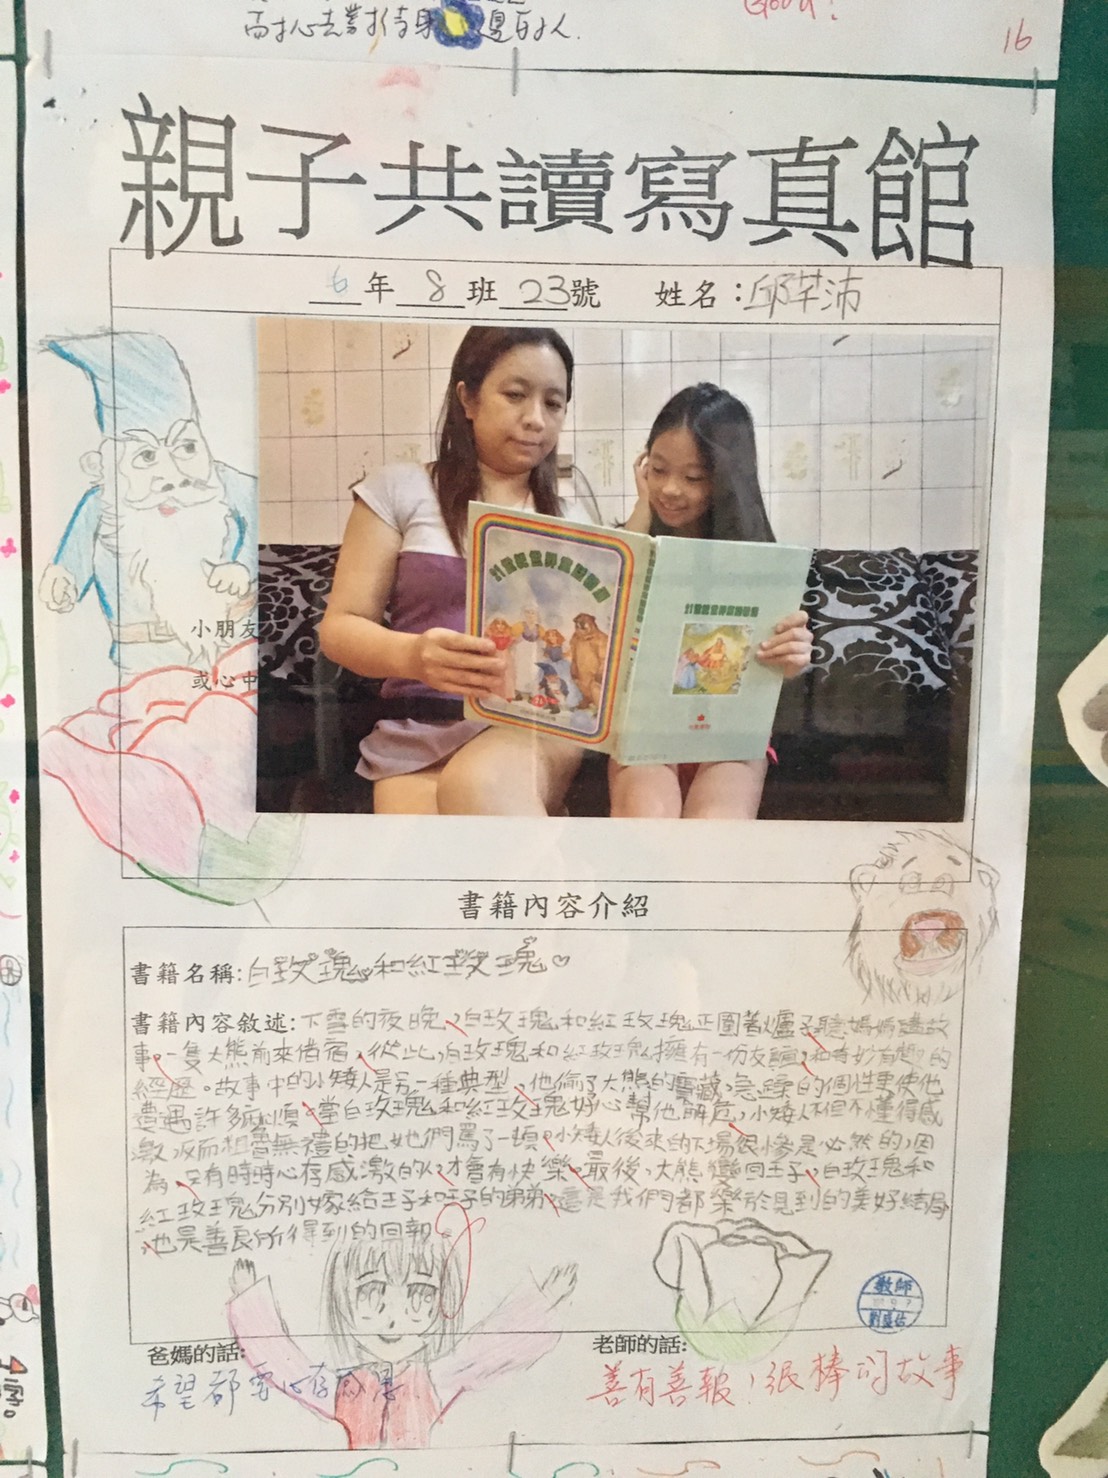 高
去
身邊的人.
Good!
16
親子共讀寫真館
6年8班23號 姓名：邱芊沛
21世紀世界童話精選
21世紀世界童話精選
小朋友
或心中
書籍內容介紹
書籍名稱:白玫瑰和紅玫瑰♡
書籍內容敘述:下雪的夜晚，白玫瑰和紅玫瑰正圍著爐子聽媽媽講故
事。一隻大熊前來借宿，從此，白玫瑰和紅玫瑰擁有一份友誼，和奇妙有趣的
經歷。故事中的小矮人是另一種典型，他偷了大熊的寶藏。急躁的個性更使他
遭遇許多麻煩。當白玫瑰和紅玫瑰好心幫他解危，小矮人不但不懂得感
激，反而粗魯無禮的把她們罵了一頓。小矮人後來的下場很慘是必然的，因
為，只有時時心存感激的人，才會有快樂。最後，大熊變回王子，白玫瑰和
紅玫瑰分別嫁給王子和王子的弟弟，這是我們都樂於見到的美好結局
，也是善良所得到的回報。
爸媽的話:
希望都要心存感恩
老師的話:
善有善報！很棒的故事
教師